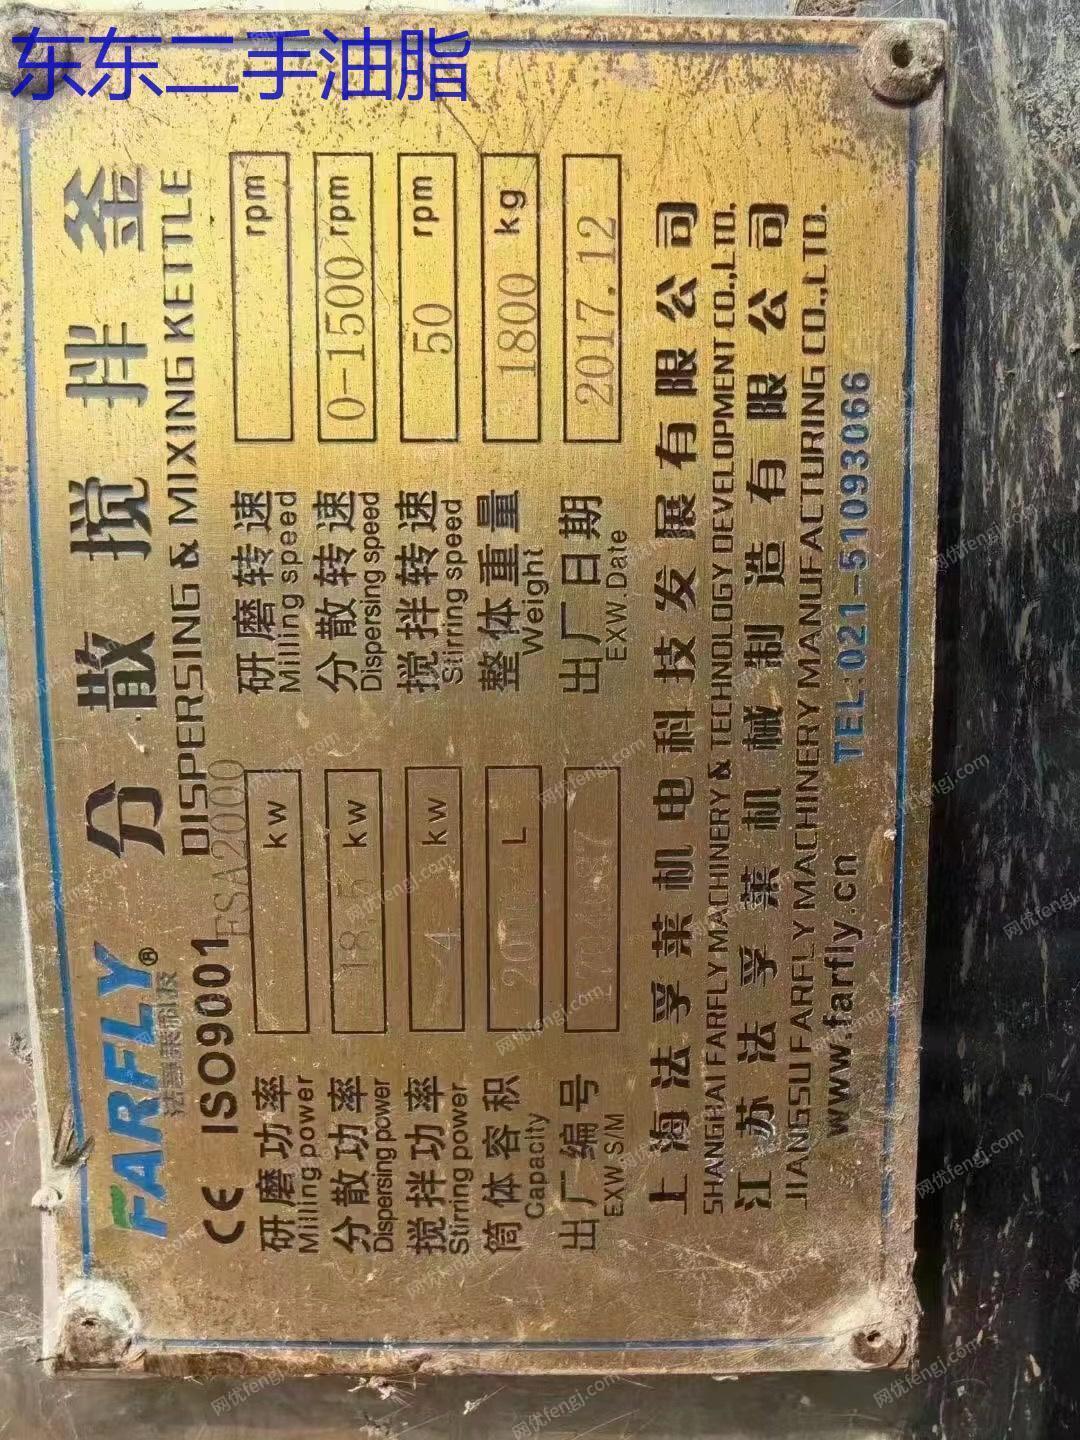 东东二手油脂
FARFLY®
分散搅拌釜
DISPERSING & MIXING KETTLE
CE ISO9001
研磨功率 kw 研磨转速 rpm
Milling power Milling speed
分散功率 18.5 kw 分散转速 0-1500 rpm
Dispersing power Dispersing speed
搅拌功率 4 kw 搅拌转速 50 rpm
Stirring power Stirring speed
筒体容积 L 整体重量 1800 kg
Capacity Weight
出厂编号 出厂日期 2017.12
EXW.S/M EXW.Date
上海法孚莱机电科技发展有限公司
SHANGHAI FARFLY MACHINERY & TECHNOLOGY DEVELOPMENT CO.,LTD.
江苏法孚莱机械制造有限公司
JIANGSU FARFLY MACHINERY MANUFACTURING CO.,LTD.
www.farfly.cn TEL:021-51093066
网优fengj.com